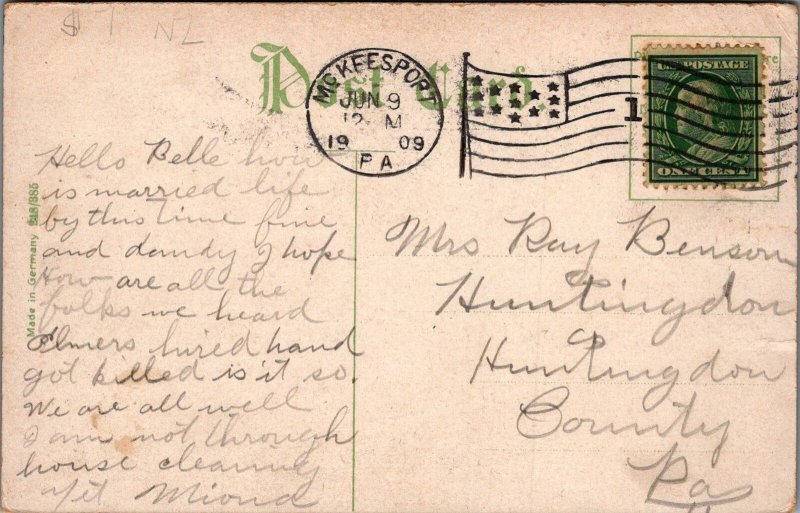 $1 NL
Post Card
McKEESPORT
JUN 9
12 M
1909
PA
1
U.S. POSTAGE
ONE CENT
Made in Germany 218/385
Hello Belle how
is married life
by this time fine
and dandy I hope
How are all the
folks we heard
Elmers hired hand
got killed is it so.
We are all well
I am not through
house cleaning
yit
Mrs Ray Benson
Huntingdon
Huntingdon
County
Pa